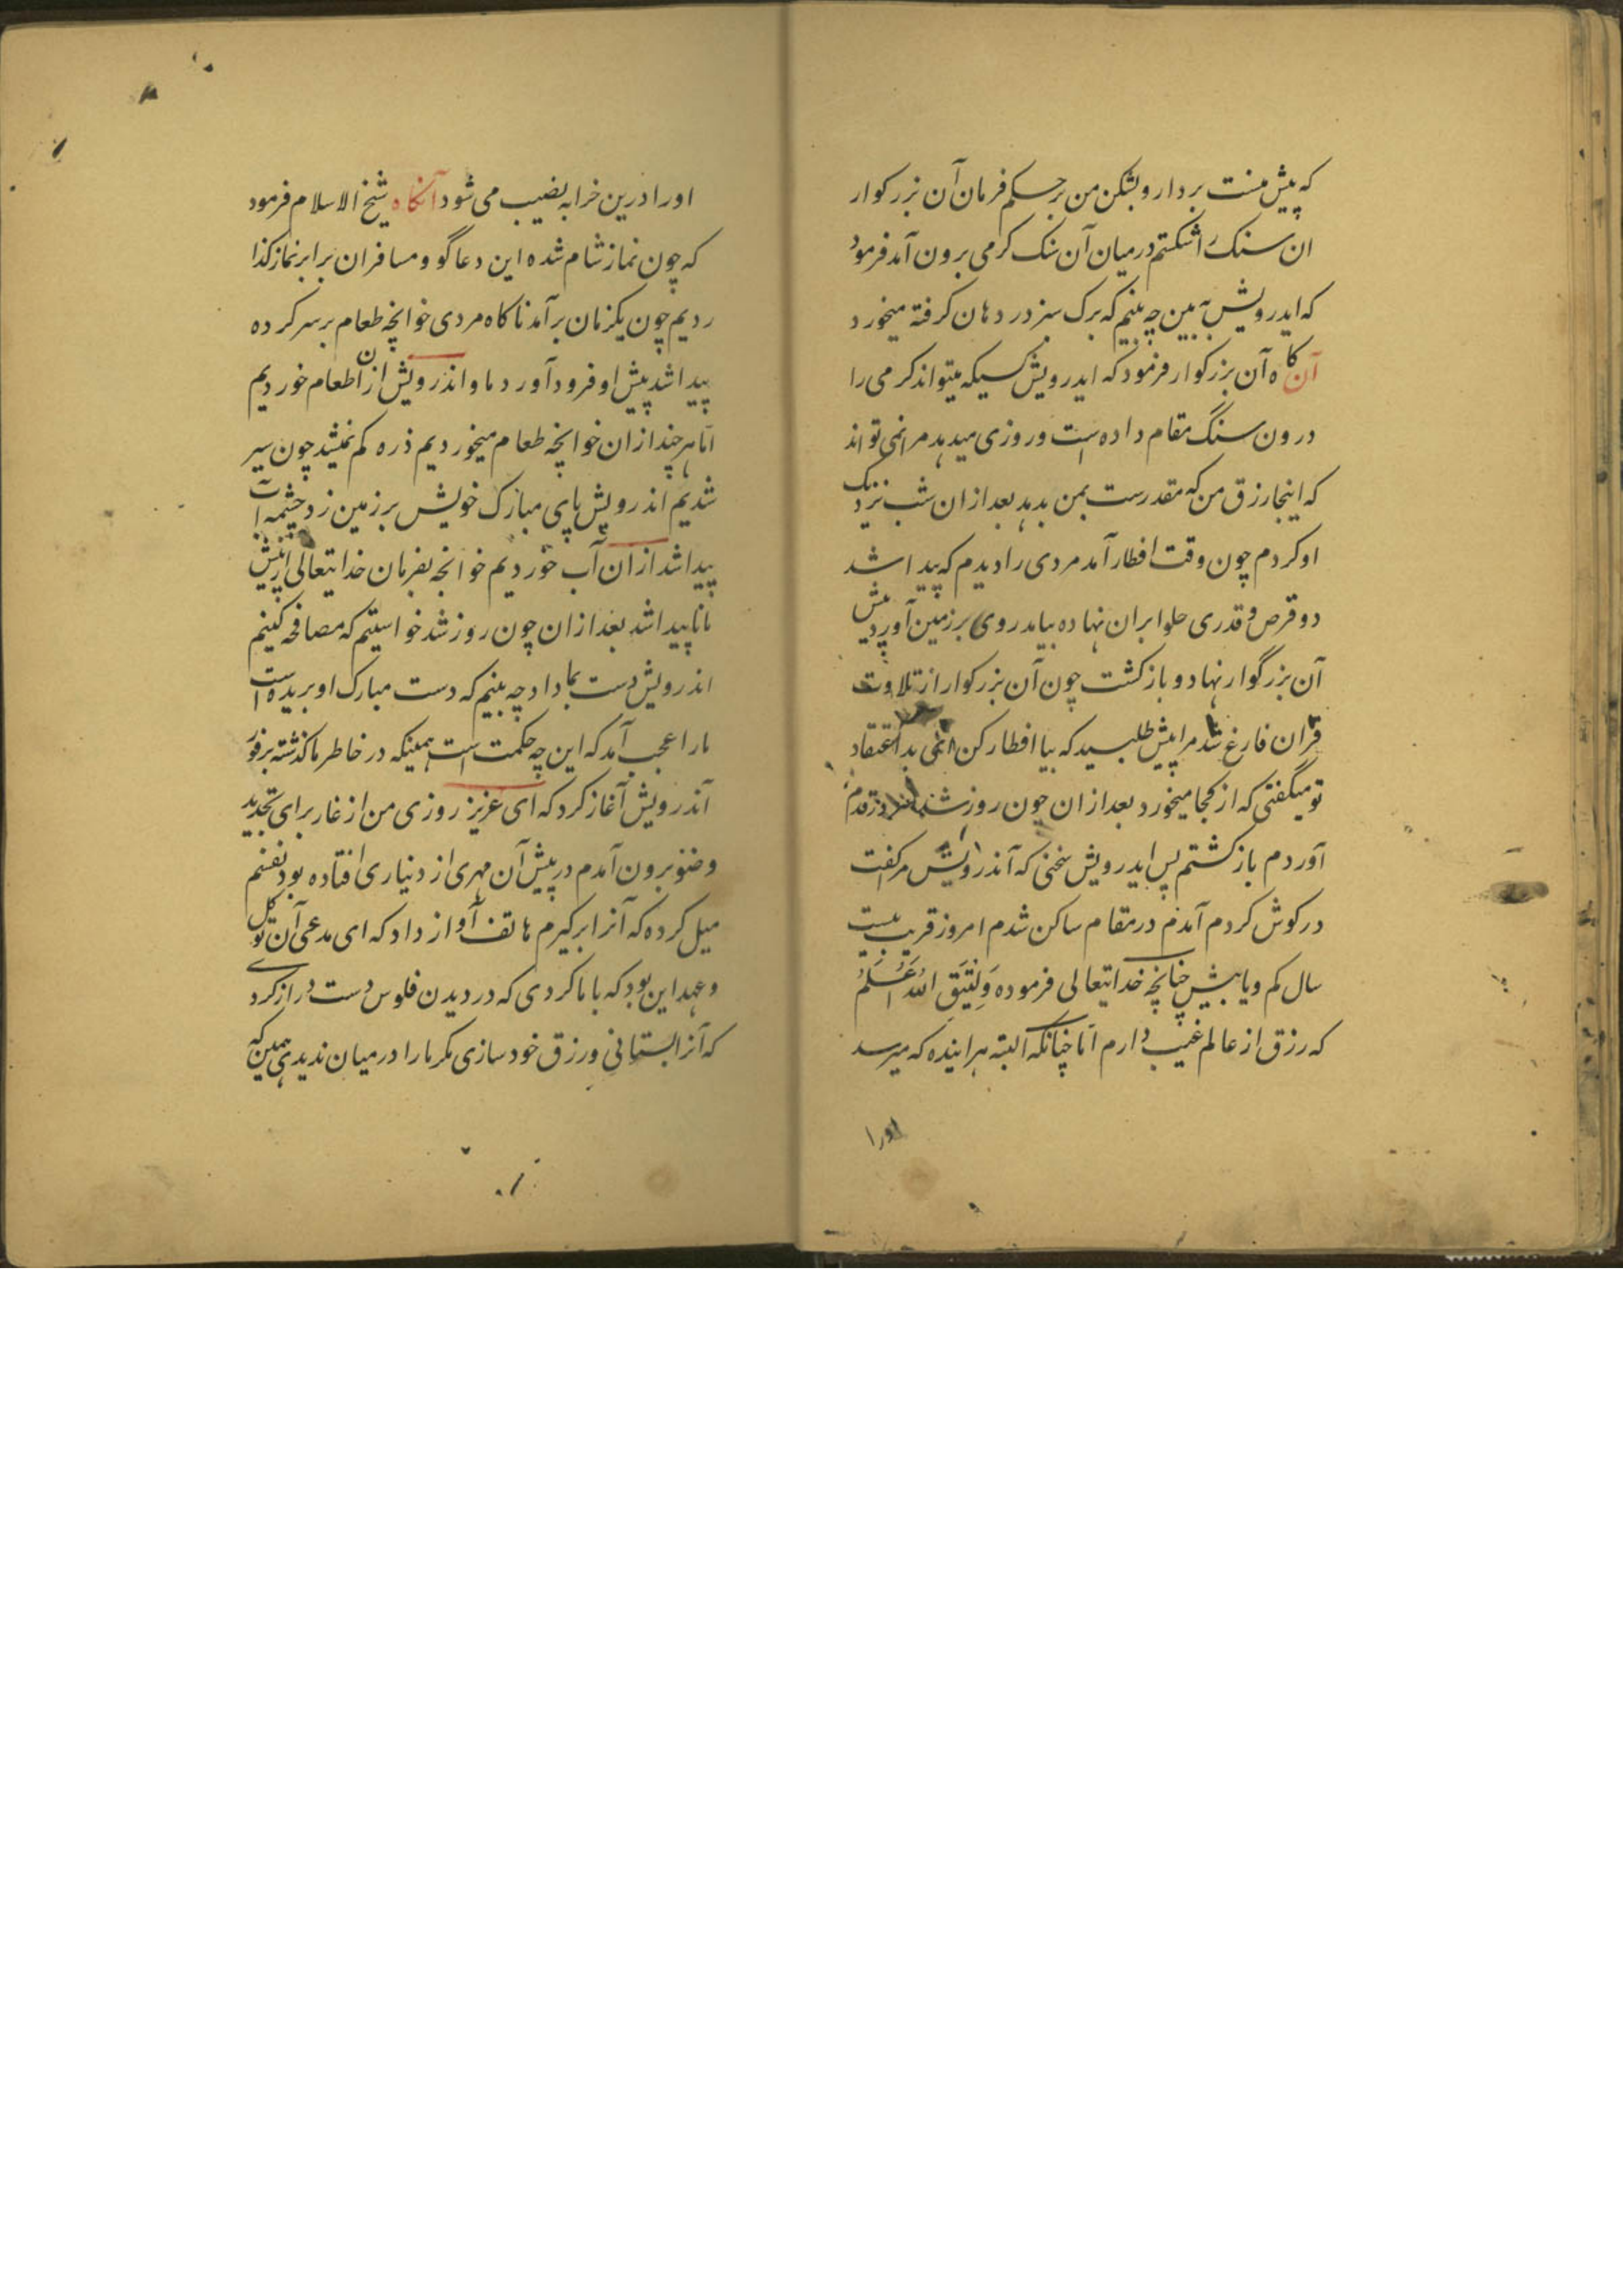 که پیش منست بردار و بشکن من برحسکم فرمان آن بزرکوار
ان سنک را شکستم درمیان آن سنک کرمی برون آمد فرمود
که ایدرویش ببین چه بینم که برک سبز در دهان کرفته میخورد
آن کاه آن بزرکوار فرمود که ایدرویش کسیکه میتواند کرمی را
درون سنگ مقام داده است و روزی میدهد مرا نمی تواند
که اینجا رزق من که مقدرست بمن بدهد بعد ازان شب نزدیک
او کردم چون وقت افطار آمد مردی را دیدم که پیدا شد
دو قرص و قدری حلوا بران نهاده بیامد روی بر زمین آورد پیش
آن بزرگوار نهاد و باز کشت چون آن بزرکوار از تلاوت
قران فارغ شد مرا پیش طلبسید که بیا افطار کن ای بد اعتقاد
تو میگفتی که از کجا میخورد بعد ازان چون روز شد قدم
آوردم باز کشتم پس ایدرویش سخنی که آندرویش مرا کفت
در کوش کردم آمدم در مقام ساکن شدم امروز قریب بیست
سال کم و یا بیش چنانچه خدایتعالی فرموده
که رزق از عالم غیب دارم اما چنانکه البته هر اینده که میرسد
اورا
اورا درین خرابه نصیب می شود آنکاه شیخ الاسلام فرمود
که چون نماز شام شده این دعاگو و مسافران برابر نماز کذا
ردیم چون یکزمان برآمد ناکاه مردی خوانچه طعام بر سر کرده
پیدا شد پیش او فرود آورد ما و اندرویش ازان طعام خوردیم
اما هر چند ازان خوانچه طعام میخوردیم ذره کم نمیشد چون سیر
شدیم اندرویش پای مبارک خویش بر زمین زد چشمه آب
پیدا شد ازان آب خوردیم خوانچه بفرمان خدایتعالی از پیش
ما ناپیدا شد بعد ازان چون روز شد خواستیم که مصافحه کنیم
اندرویش دست بما داد چه بینم که دست مبارک او بریده است
مارا عجب آمد که این چه حکمت است همینکه در خاطر ما کذشته بر فور
آندرویش آغاز کرد که ای عزیز روزی من از غار برای تجدید
وضو برون آمدم در پیش آن مهری از دنیاری افتاده بود نفسم
میل کرده که آنرا برکیرم هاتف آواز داد که ای مدعی آن توکل
و عهد این بود که با ما کردی که در دیدن فلوس دست دراز کردے
که آنرا بستانی و رزق خود سازی مکر ما را درمیان ندیدی همین که